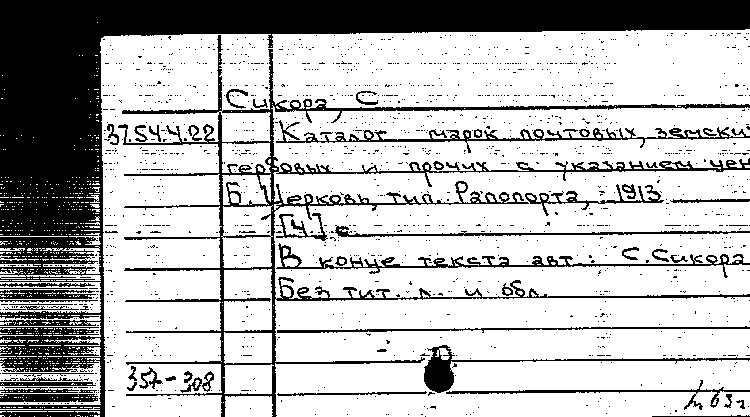 Сикора, С
37.54.4.22 Каталог марок почтовых, земски
гербовых и прочих с указанием цен
Б. Церковь, тип. Рапопорта, 1913
[4] с
В конце текста авт.: С. Сикора
Без тит. л. и обл.
357-308
63г